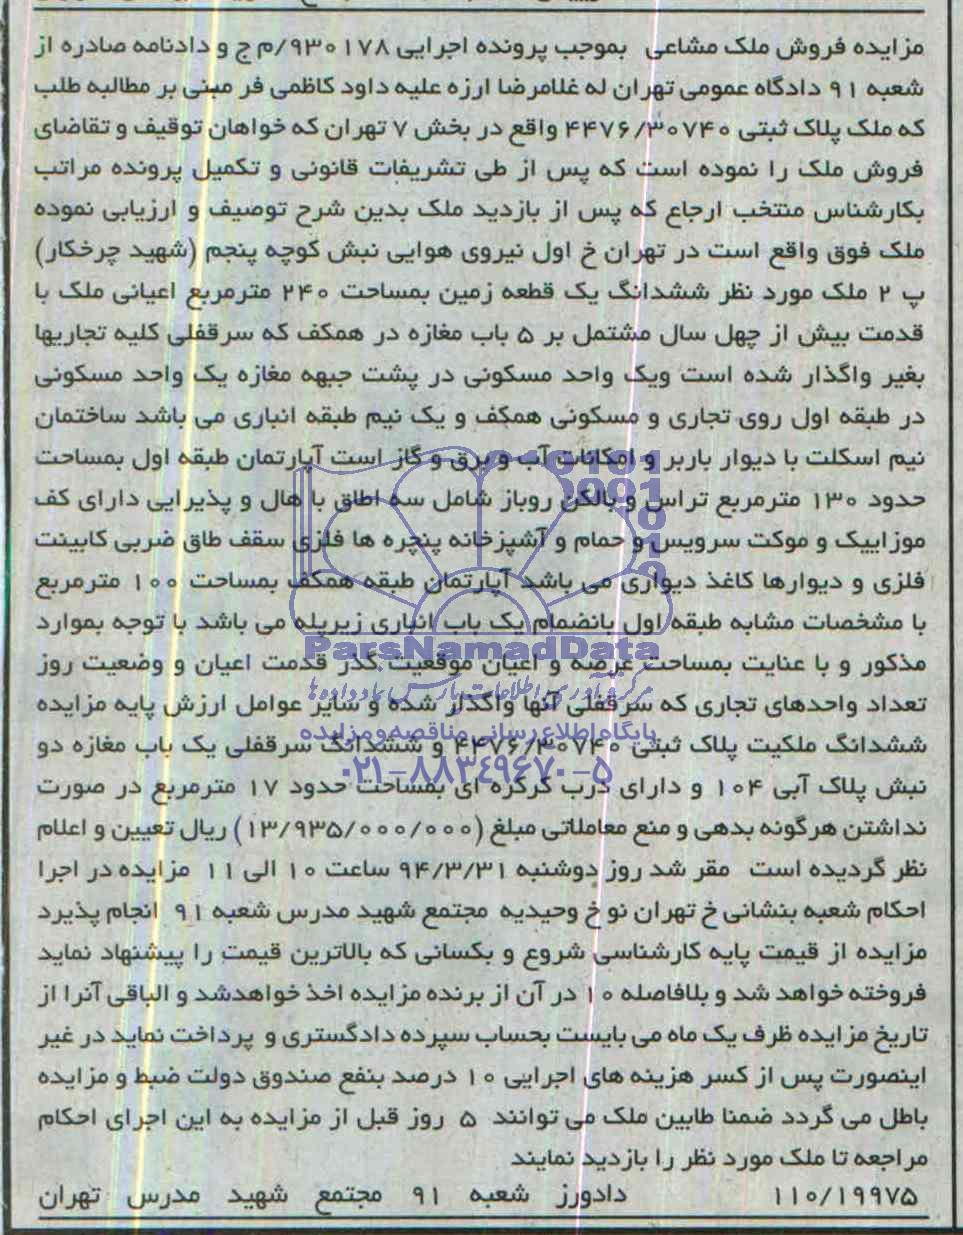 مزایده فروش ملک مشاعی بموجب پرونده اجرایی ۹۳۰۱۷۸/م ج و دادنامه صادره از
شعبه ۹۱ دادگاه عمومی تهران له غلامرضا ارزه علیه داود کاظمی فر مبنی بر مطالبه طلب
که ملک پلاک ثبتی ۴۴۷۶/۳۰۷۴۰ واقع در بخش ۷ تهران که خواهان توقیف و تقاضای
فروش ملک را نموده است که پس از طی تشریفات قانونی و تکمیل پرونده مراتب
بکارشناس منتخب ارجاع که پس از بازدید ملک بدین شرح توصیف و ارزیابی نموده
ملک فوق واقع است در تهران خ اول نیروی هوایی نبش کوچه پنجم (شهید چرخکار)
پ ۲ ملک مورد نظر ششدانگ یک قطعه زمین بمساحت ۲۴۰ مترمربع اعیانی ملک با
قدمت بیش از چهل سال مشتمل بر ۵ باب مغازه در همکف که سرقفلی کلیه تجاریها
بغیر واگذار شده است ویک واحد مسکونی در پشت جبهه مغازه یک واحد مسکونی
در طبقه اول روی تجاری و مسکونی همکف و یک نیم طبقه انباری می باشد ساختمان
نیم اسکلت با دیوار باربر و امکانات آب و برق و گاز است آپارتمان طبقه اول بمساحت
حدود ۱۳۰ مترمربع تراس و بالکن روباز شامل سه اطاق با هال و پذیرایی دارای کف
موزاییک و موکت سرویس و حمام و آشپزخانه پنچره ها فلزی سقف طاق ضربی کابینت
فلزی و دیوارها کاغذ دیواری می باشد آپارتمان طبقه همکف بمساحت ۱۰۰ مترمربع
با مشخصات مشابه طبقه اول بانضمام یک باب انباری زیرپله می باشد با توجه بموارد
ParsNamadData
مذکور و با عنایت بمساحت عرصه و اعیان موقعیت گذر قدمت اعیان و وضعیت روز
مرکز فرآوری اطلاعات پارس نماد داده ها
تعداد واحدهای تجاری که سرقفلی آنها واگذار شده و سایر عوامل ارزش پایه مزایده
پایگاه اطلاع رسانی مناقصه و مزایده
ششدانگ ملکیت پلاک ثبتی ۴۴۷۶/۳۰۷۴۰ و ششدانگ سرقفلی یک باب مغازه دو
۰۲۱-۸۸۳۴۹۶۷۰-۵
نبش پلاک آبی ۱۰۴ و دارای درب کرکره ای بمساحت حدود ۱۷ مترمربع در صورت
نداشتن هرگونه بدهی و منع معاملاتی مبلغ (۱۳/۹۳۵/۰۰۰/۰۰۰) ریال تعیین و اعلام
نظر گردیده است مقر شد روز دوشنبه ۹۴/۳/۳۱ ساعت ۱۰ الی ۱۱ مزایده در اجرا
احکام شعبه بنشانی خ تهران نو خ وحیدیه مجتمع شهید مدرس شعبه ۹۱ انجام پذیرد
مزایده از قیمت پایه کارشناسی شروع و بکسانی که بالاترین قیمت را پیشنهاد نماید
فروخته خواهد شد و بلافاصله ۱۰ در آن از برنده مزایده اخذ خواهدشد و الباقی آنرا از
تاریخ مزایده ظرف یک ماه می بایست بحساب سپرده دادگستری و پرداخت نماید در غیر
اینصورت پس از کسر هزینه های اجرایی ۱۰ درصد بنفع صندوق دولت ضبط و مزایده
باطل می گردد ضمنا طابین ملک می توانند ۵ روز قبل از مزایده به این اجرای احکام
مراجعه تا ملک مورد نظر را بازدید نمایند
۱۱۰/۱۹۹۷۵ دادورز شعبه ۹۱ مجتمع شهید مدرس تهران